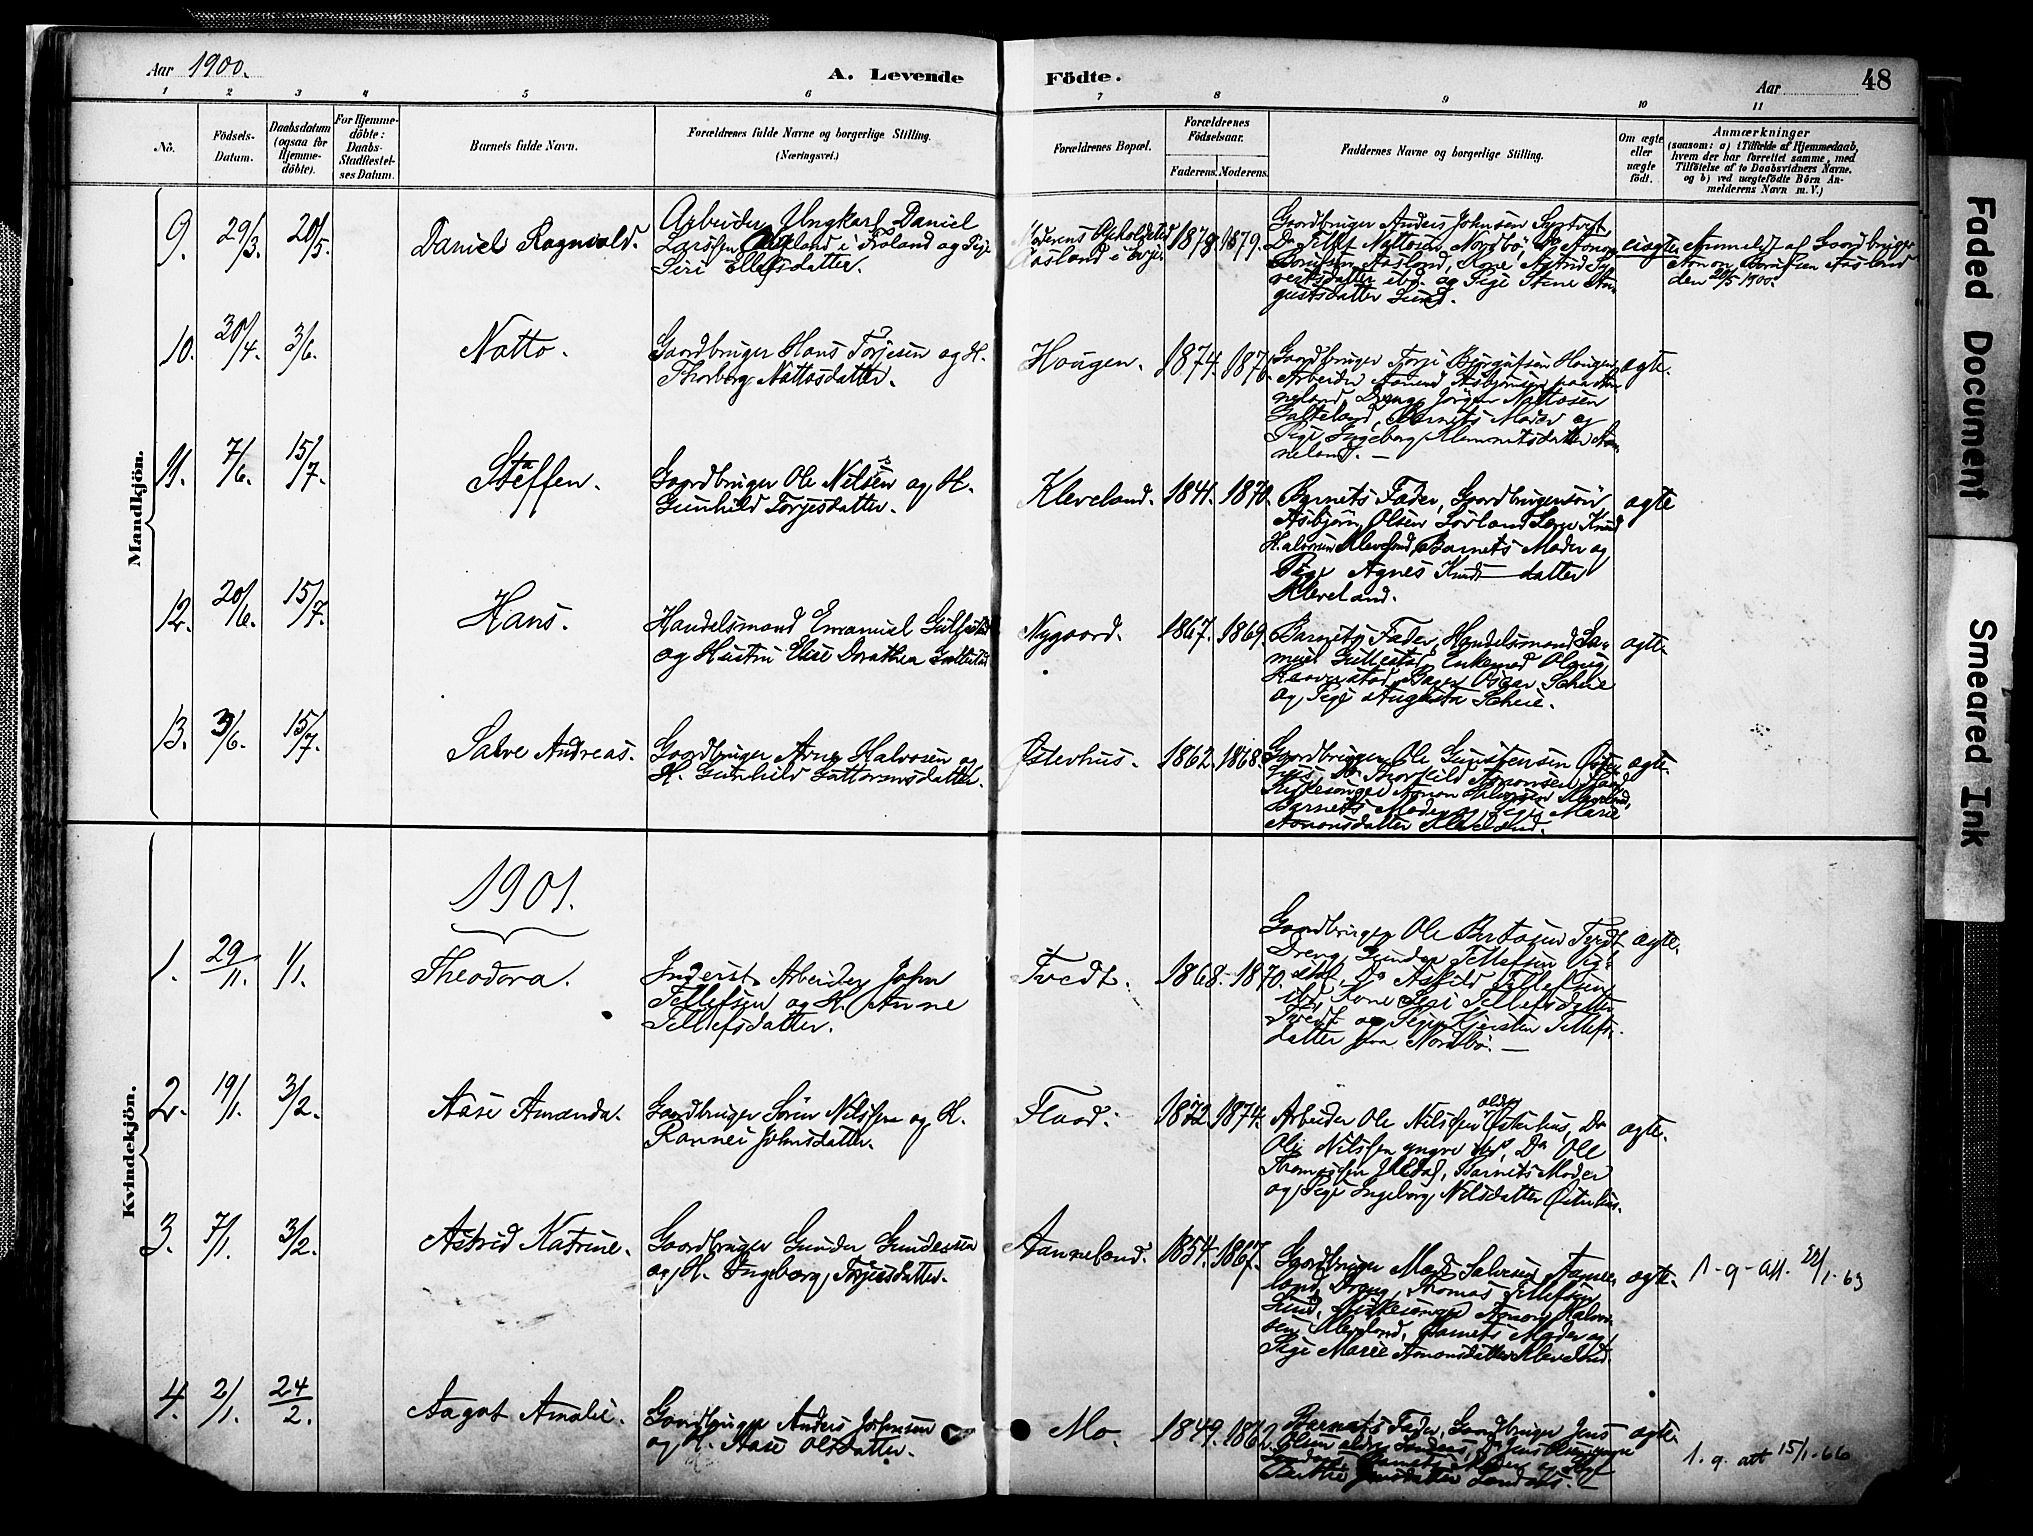 Aar 1900.
A. Levende
Födte.
Aar
48
1 2 3 4 5 6 7 8 9 10 11
No.
Födsels-
Datum.
Daabsdatum
(ogsaa for
Hjemme-
döbte).
For Hjemme-
döbte:
Daabs-
Stadfæstel-
ses Datum.
Barnets fulde Navn.
Forældrenes fulde Navne og borgerlige Stilling.
(Næringsvei.)
Forældrenes Bopæl.
Forældrenes
Födselsaar.
Faderens. Moderens.
Faddernes Navne og borgerlige Stilling.
Om ægte
eller
uægte
födt.
Anmærkninger
(saasom: a) i Tilfælde af Hjemmedaab,
hvem der har forrettet samme, med
Tilföielse af to Daabsvidners Navne.
og b) ved uægtefödte Börn An-
melderens Navn m. V.)
Mandkjön.
9. 29/3. 20/5. Daniel Ragnvald.
Arbeider Ungkarl Daniel
Larssen i Froland og Pige
Siri Ellefsdatter.
Moderens Opholdssted
Aasland i
1878 1879.
Gaardbruger Anders Johnsen
Aasland,
og Pige Stine
gustsdatter Lund.
uægte
Anmeldt af Gaardbruger
Aanon Berulfsen Aasland
den 20/5 1900.
10. 30/4. 3/6. Natto.
Gaardbruger Hans Torjesen og H.
Thorborg Nattosdatter.
Hougen. 1874.
Gaardbruger Torje Bjorgulfsen Hougen,
Arbeider Aanund Asbjörnsen paa
neland, Dreng Jörgen Nattosen
Galteland, Barnets Moder og
Pige Ingeborg Klemmetsdatter Aan-
neland. —
ægte.
11. 7/6. 15/7. Staffen.
Gaardbruger Ole Nilsen og H.
Gunhild Torjesdatter.
Kleveland. 1841. 1870.
Barnets Fader, Gaardbrugersön
Asbjörn Olsen Lovland, Knud
Halvorsen Kleveland, Barnets Moder og
Pige Agnes Knuds datter
Kleveland.
ægte
12. 20/6. 15/7. Hans.
Handelsmand Emanuel Gullestad
og Hustru Elise Dorathea Gullestad
Nygaard. 1867. 1869.
Barnets Fader, Handelsmand Sa-
muel Gullestad, Enkemad Olaug
Oscar Scheie
og Pige Augusta Scheie.
ægte.
13. 3/6. 15/7. Salve Andreas.
Gaardbruger Arne Halvorsen og
H. Gunhild Guttormsdatter.
Österhus. 1862. 1868.
Gaardbruger Ole Gunstensen Öster-
hus, Do Thorkild Aanonsen
Kirkesanger Aanon Halvorsen Kleveland,
Barnets Moder og Pige Marie
Aanonsdatter Kleveland.
ægte.
Kvindekjön.
1901.
1. 29/11. 1/1. Theodora.
Inderst Arbeider John
Tellefsen og H. Anne
Tellefsdatter.
Tvedt. 1868. 1870.
Gaardbruger Ole Bertosen Tvedt
Dreng Gunder Tellefsen
Do Askild Tellefsen
ibd, Kone Siri Tellefsdatter
Tvedt og Pige Kjersten Tellefs-
datter fra Nordbö. —
ægte.
2. 19/1. 3/2. Aase Amanda.
Gaardbruger Sören Nilssen og H.
Rannei Johnsdatter.
Flaad. 1872 1874.
Arbeider Ole Nilssen ældre Österhus, Do
Ole Nilssen yngre ibd, Do Ole
Thomassen Uldal, Barnets Moder
og Pige Ingeborg Nilsdatter Österhus.
ægte.
3. 7/1. 3/2. Astrid Katrine.
Gaardbruger Gunder Gundersen
og H. Ingeborg Torjesdatter.
Aanneland. 1854. 1867.
Gaardbruger Mads Salvesen Aanne-
land, Dreng Thomas Tellefsen
Lund, Kirkesanger Aanon Halvor-
sen Kleveland, Barnets Moder og
Pige Marie Aanonsdatter Kleveland.
ægte.
1-9-att. 22/1-63
4. 2/1. 24/2. Aagot Amalie.
Gaardbruger Anders Johnsen
og H. Aase Olsdatter.
Mo. 1849. 1862.
Barnets Fader, Gaardbruger Jens
Olsen ældre Senders, Do Jens Olsen yngre
Barnets Moder
Jensdatter
ægte.
1. 9. att 15/1-66
Faded Document
Smeared Ink